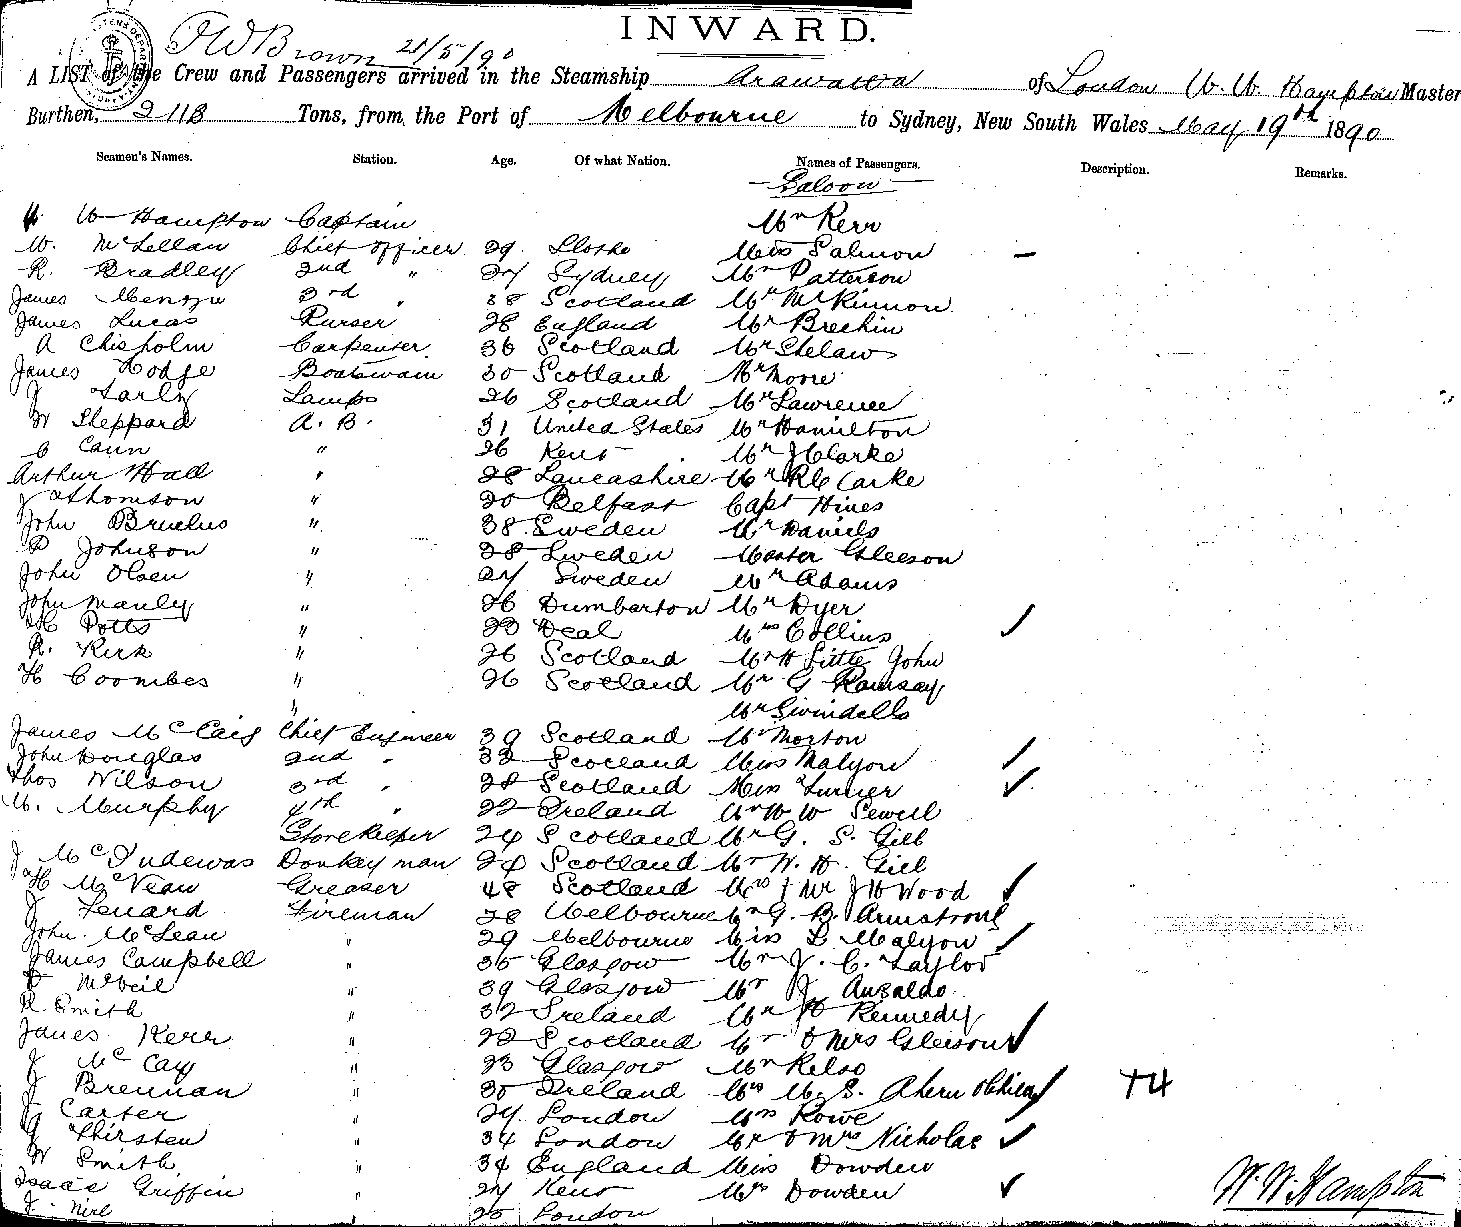 INWARD.
J W Brown 21/5/90
A LIST of the Crew and Passengers arrived in the Steamship Arawatta of London W. W. Hampton Master
Burthen, 2118 Tons, from the Port of Melbourne to Sydney, New South Wales May 19th 1890
Seamen's Names. Station. Age. Of what Nation. Names of Passengers. Description. Remarks.
Saloon
W Hampton Captain Mr Kerr
W. McLellan Chief officer 29 Miss Salmon
R. Bradley 2nd " 27 Sydney Mr Patterson
James Menzie 3rd " 38 Scotland Mr McKinnon
James Lucas Purser 28 England Mr Brechin
A Chisholm Carpenter 36 Scotland Mr Shelaw
James Hodge Boatswain 30 Scotland Mr Moore
J Larly Lamps 26 Scotland Mr Lawrence
W Sheppard A. B. 31 United States Mr Hamilton
C Cann " 26 Kent Mr J Clarke
Arthur Hall " 28 Lancashire Mr R Clarke
J Thomson " 20 Belfast Capt Hines
John Bruelus " 38 Sweden Mr Daniels
P Johnson " 28 Sweden Master Gleeson
John Olsen " 27 Sweden Mr Adams
John Manly " 26 Dumbarton Mr Dyer
H Potts " 23 Deal Mrs Collins
R. Kirk " 26 Scotland Mr H Little John
H Coombes " 26 Scotland Mr G Ramsay
" Mr Swindells
James McCaig Chief Engineer 39 Scotland Mr Morton
John Douglas 2nd " 33 Scotland Miss Malyon
Thos Wilson 3rd " 28 Scotland Miss Turner
W. Murphy 4th " 22 Ireland Mr H W Sewell
Storekeeper 24 Scotland Mr G. S. Gill
J McIndewas Donkeyman 24 Scotland Mr W. H. Gill
H McVean Greaser 48 Scotland Mrs & Mr J H Wood
J Lenard Fireman 28 Melbourne Mr G. B. Armstrong
John McLean " 29 Melbourne Miss L Malyon
James Campbell " 36 Glasgow Mr J. C. Taylor
McNeil " 39 Glasgow Mr J Ansaldo
R Smith " 32 Ireland Mr H Kennedy
James Kerr " 28 Scotland Mr & Mrs Gleeson
J McCay " 23 Glasgow Mr Kelso
J Brennan " 30 Ireland Mrs M. S. Ahern & Child T4
J Carter " 27 London Mrs Rowe
J Thirsten " 34 London Mr & Mrs Nicholas
W Smith " 34 England Miss Dowden
Isaac Griffin " 27 Kent Mrs Dowden
J. Neil " 25 London
W. W. Hampton